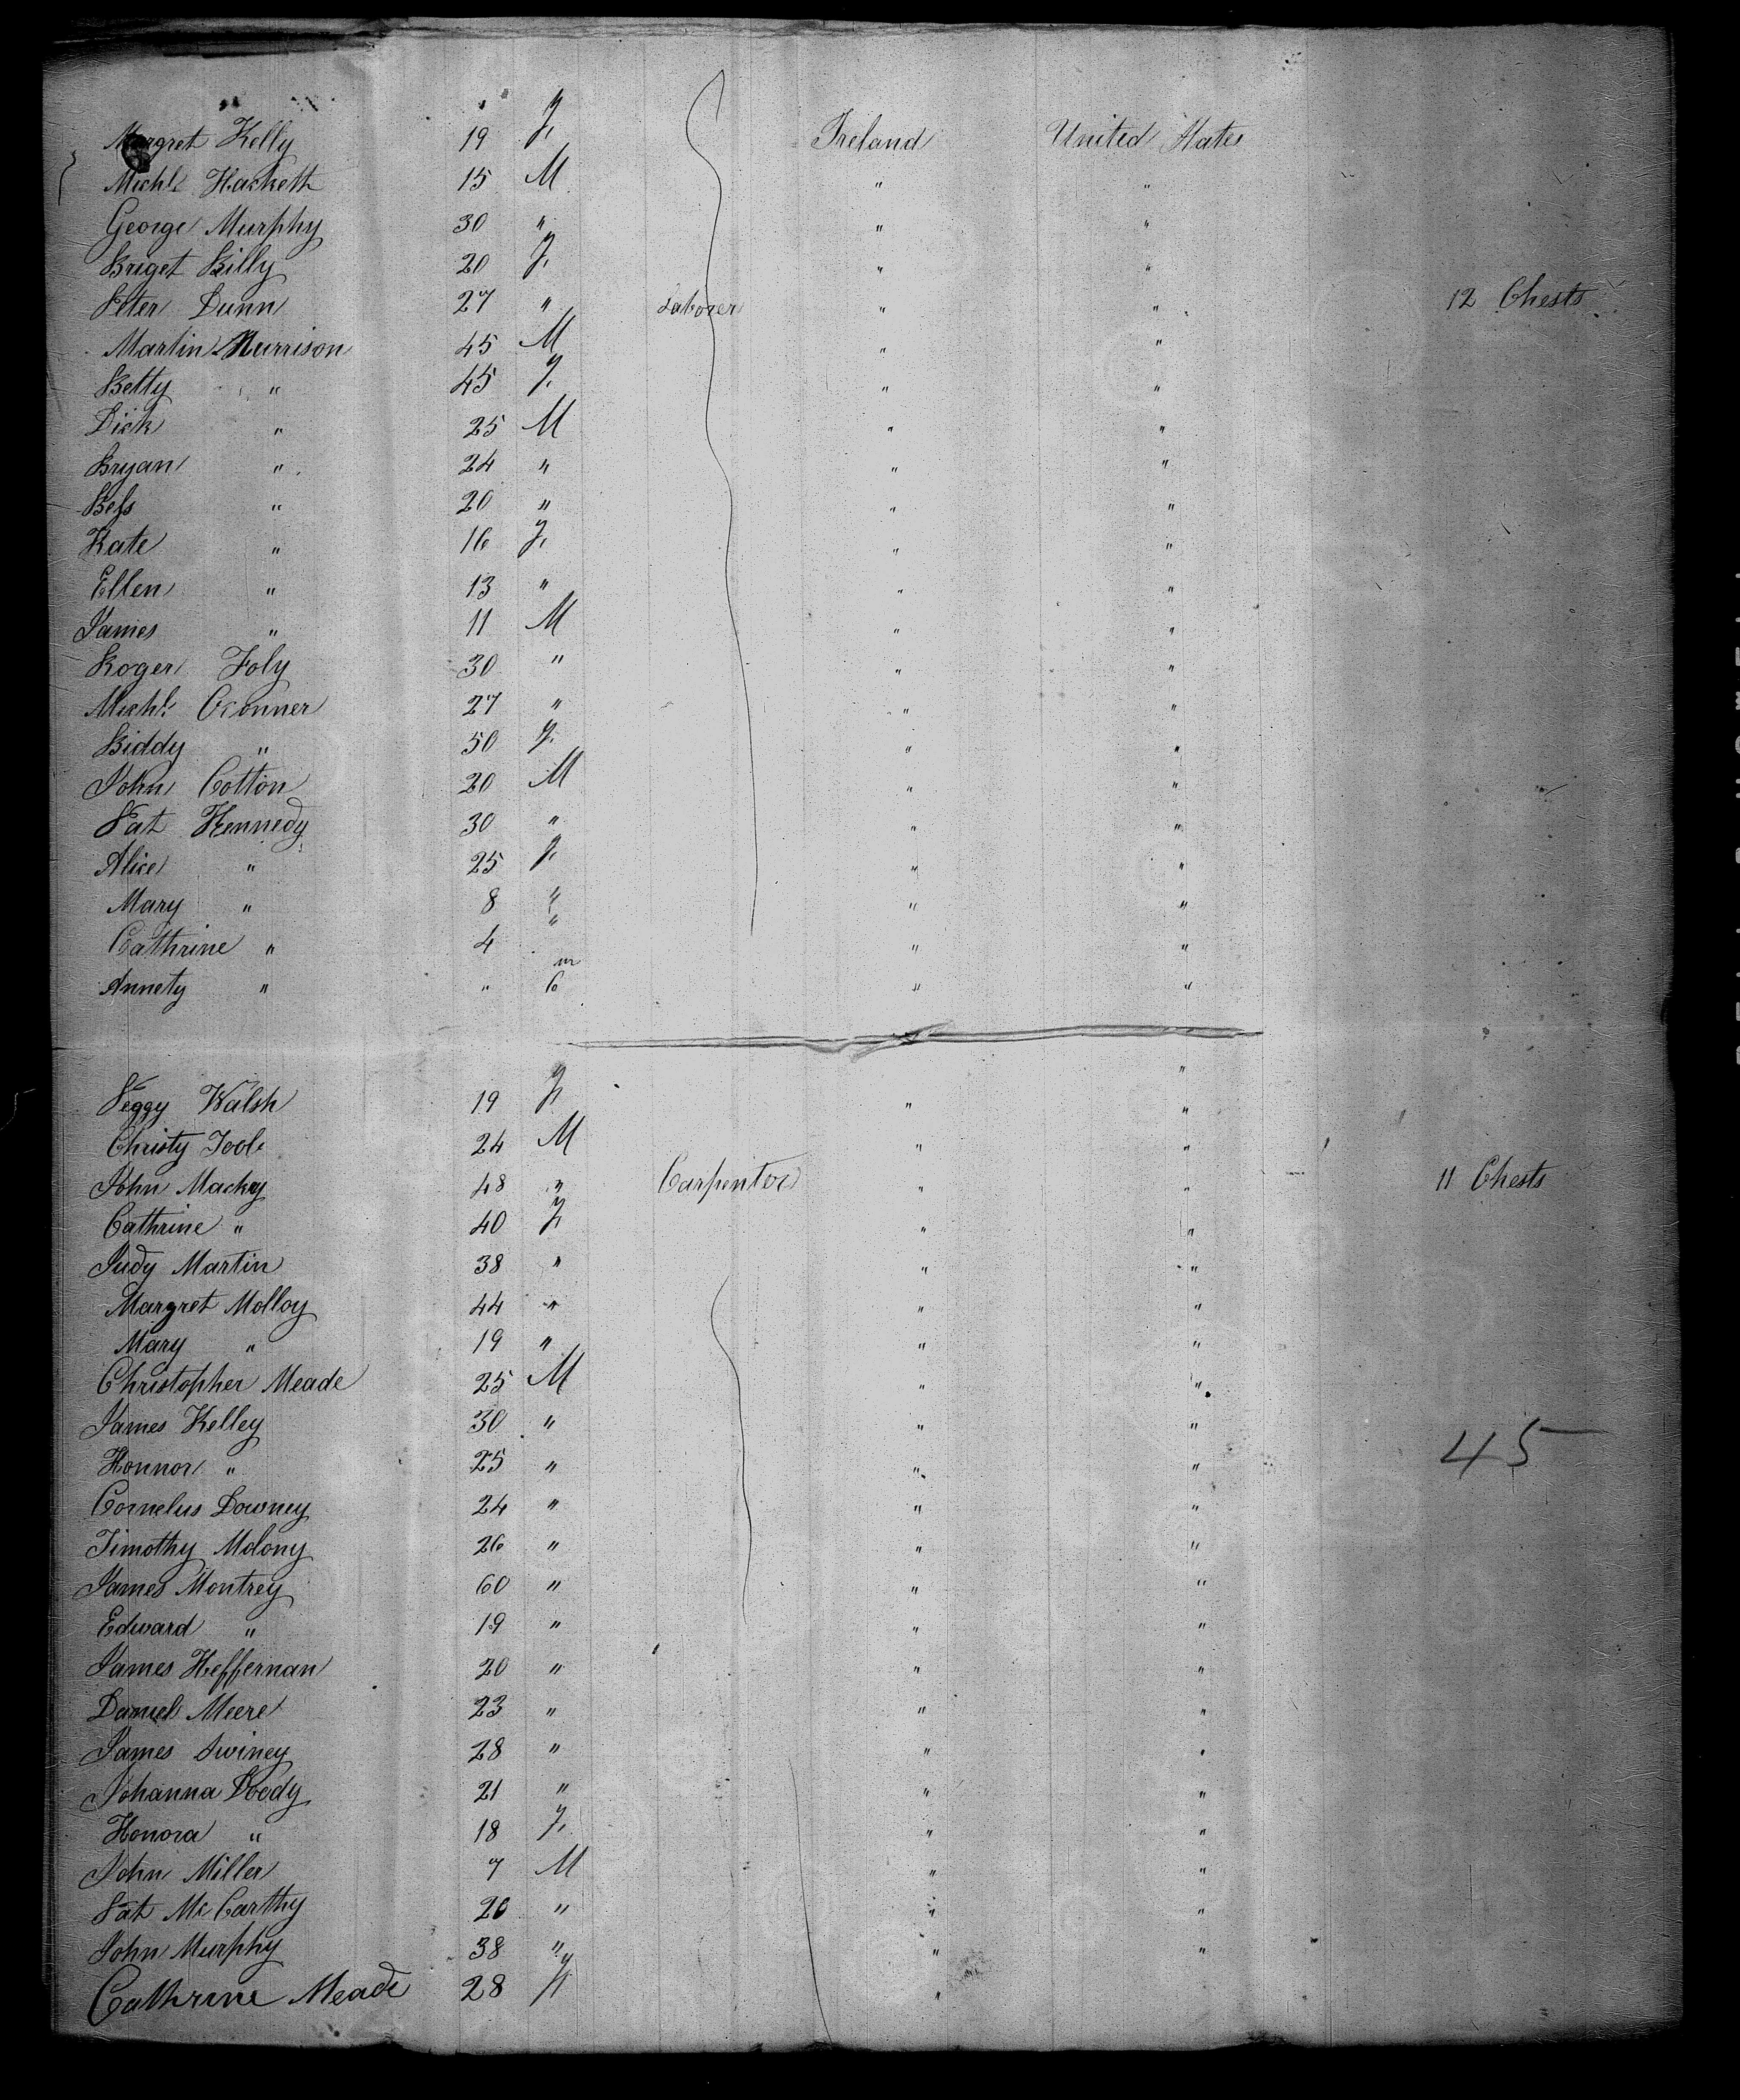 Margret Kelly 19 F. Ireland United States
Michl. Hackett 15 M " "
George Murphy 30 " " "
Briget Billy 20 F. " "
Peter Dunn 27 " Laborer " " 12 Chests
Martin Murrison 45 M " "
Betty " 45 F. " "
Dick " 25 M " "
Bryan " 24 " " "
Bess " 20 " " "
Kate " 16 F. " "
Ellen " 13 " " "
James " 11 M " "
Roger Foly 30 " " "
Michl. Oconner 27 " " "
Biddy " 50 F. " "
John Cotton 20 M " "
Pat Kennedy 30 " " "
Alice " 25 F. " "
Mary " 8 " " "
Cathrine " 4 " " "
Annety " " 6 m " "
Peggy Walsh 19 F. " "
Christy Toole 24 M " "
John Macky 48 " Carpenter " " 11 Chests
Cathrine " 40 F. " "
Judy Martin 38 " " "
Margret Molloy 44 " " "
Mary " 19 " " "
Christopher Meade 25 M " "
James Kelley 30 " " "
45
Honnor " 25 " " "
Cornelus Downey 24 " " "
Timothy Molony 26 " " "
James Montrey 60 " " "
Edward " 19 " " "
James Heffernan 20 " " "
Daniel Meere 23 " " "
James Swiney 28 " " "
Johanna Doody 21 " " "
Honora " 18 F. " "
John Miller 7 M " "
Pat McCarthy 20 " " "
John Murphy 38 " " "
Cathrine Meade 28 F "